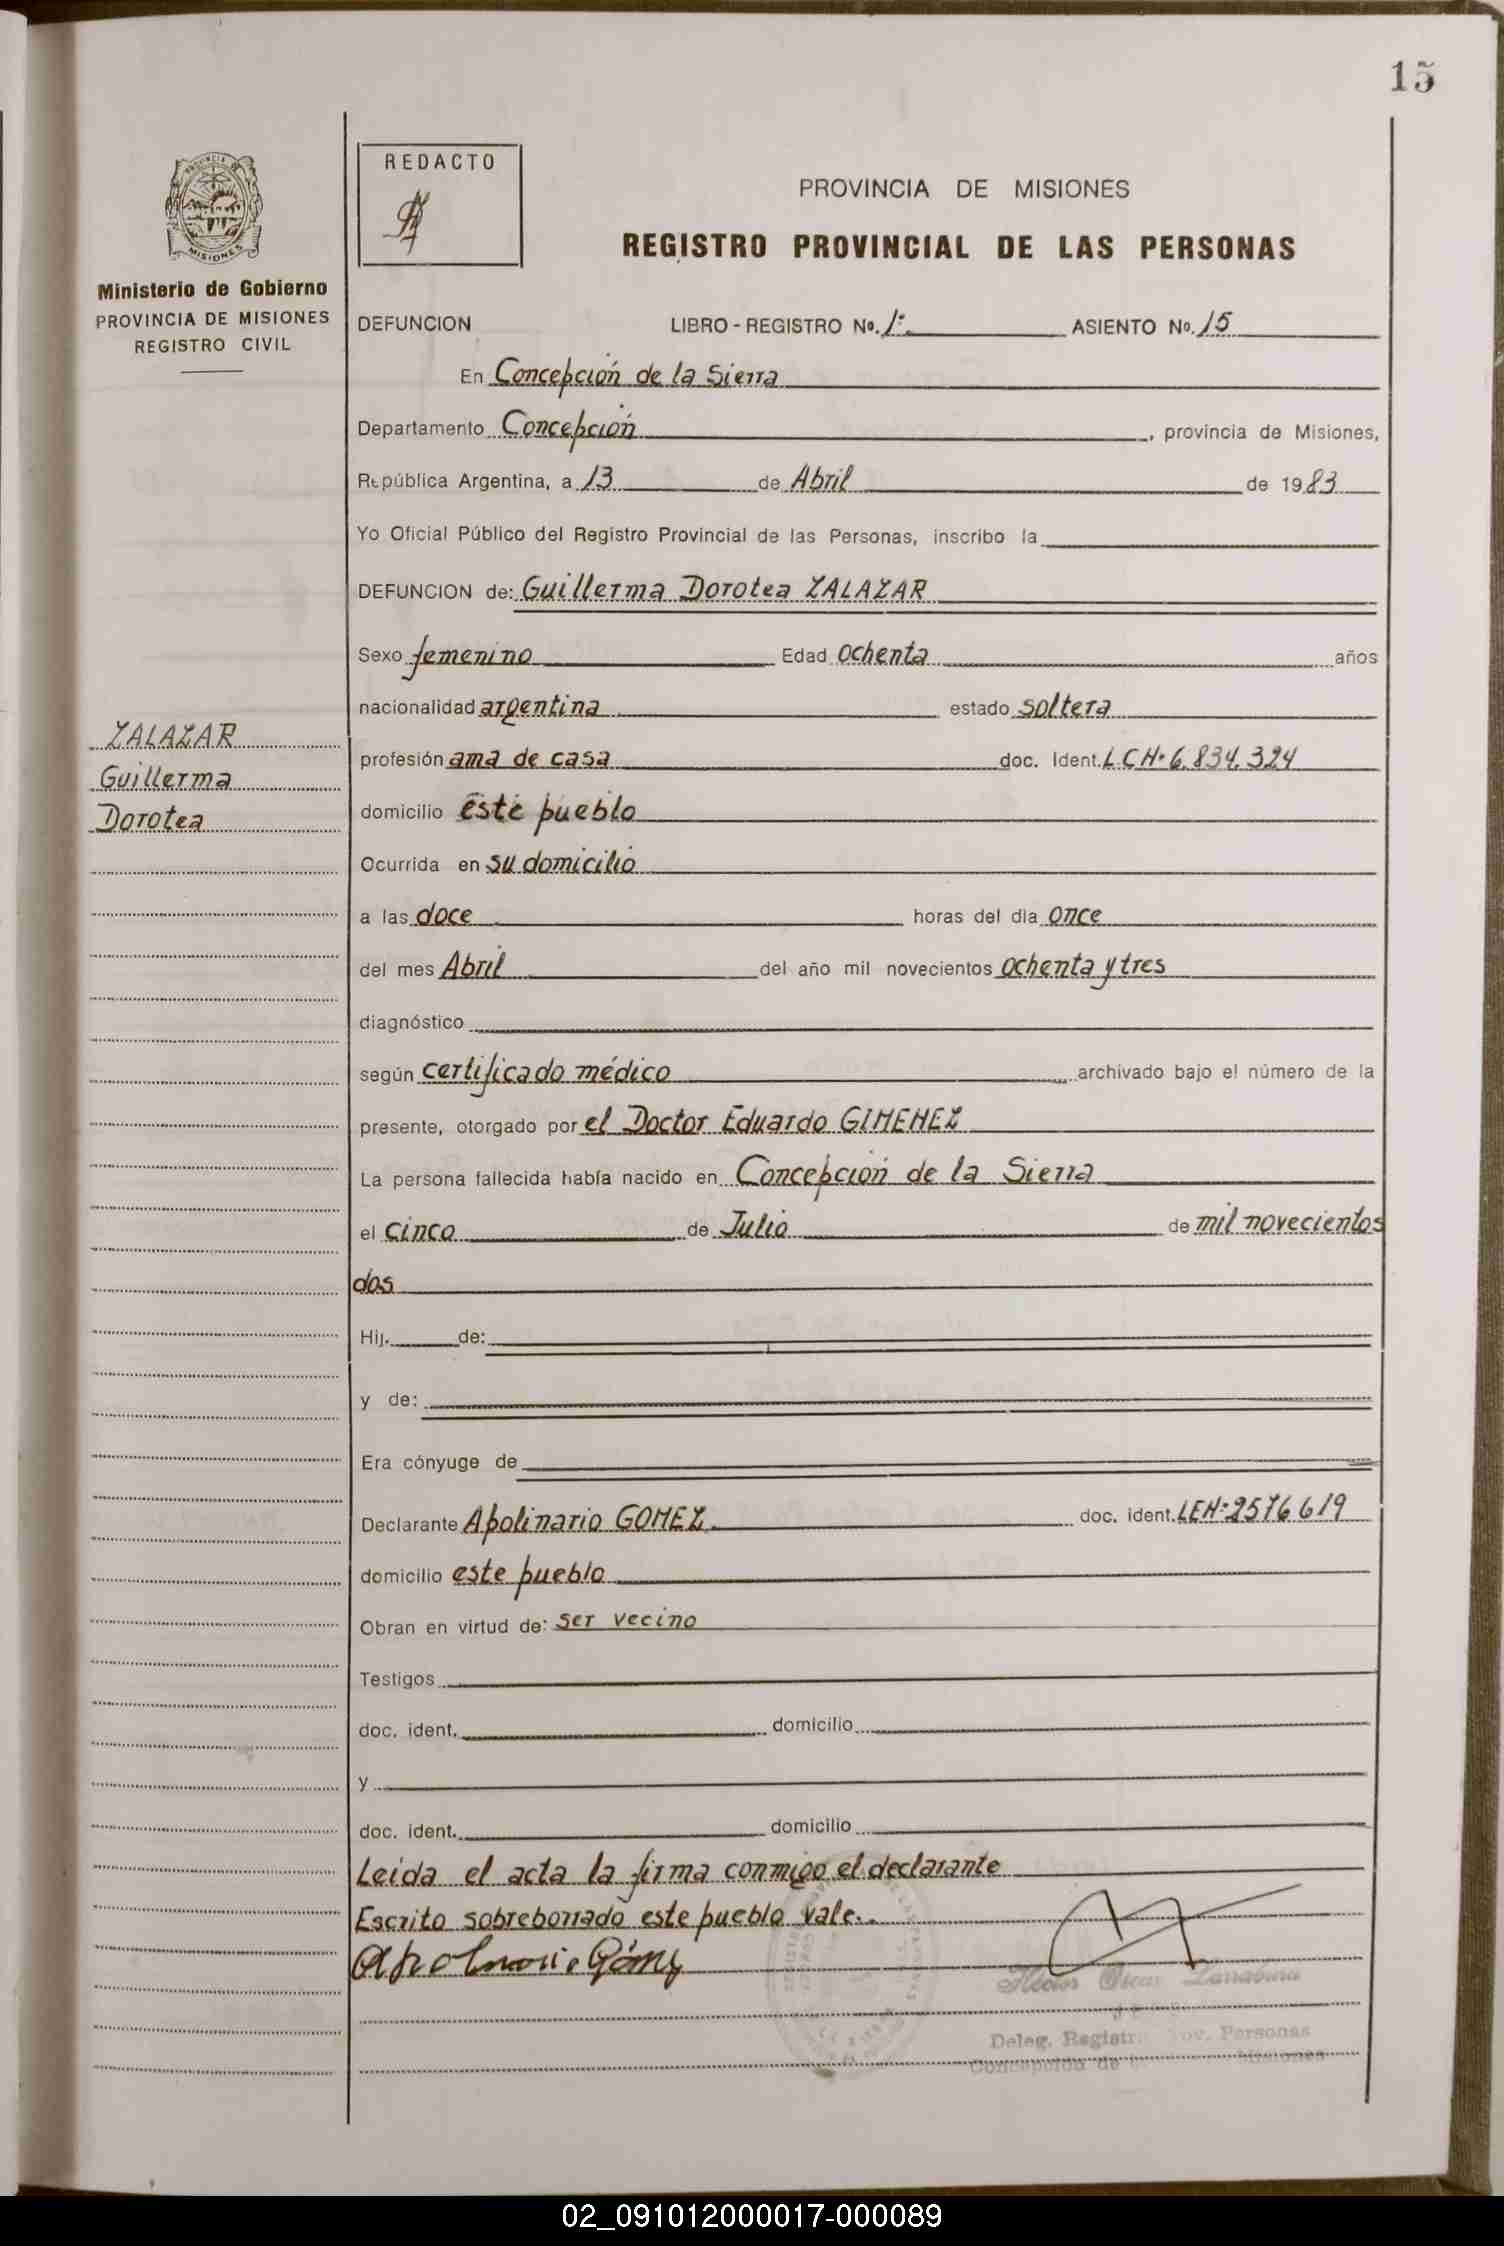 15
REDACTO
PROVINCIA DE MISIONES
REGISTRO PROVINCIAL DE LAS PERSONAS
MISIONES
Ministerio de Gobierno
PROVINCIA DE MISIONES
REGISTRO CIVIL
DEFUNCION LIBRO - REGISTRO Nº. 1º ASIENTO Nº. 15
En Concepción de la Sierra
Departamento Concepción, provincia de Misiones,
República Argentina, a 13 de Abril de 1983
Yo Oficial Público del Registro Provincial de las Personas, inscribo la
DEFUNCION de: Guillerma Dorotea ZALAZAR
Sexo femenino Edad ochenta años
nacionalidad argentina estado soltera
ZALAZAR
Guillerma
Dorotea
profesión ama de casa doc. Ident. L C Nº 6.834.324
domicilio este pueblo
Ocurrida en su domicilio
a las doce horas del dia once
del mes Abril del año mil novecientos ochenta y tres
diagnóstico
según certificado médico archivado bajo el número de la
presente, otorgado por el Doctor Eduardo GIMENEZ
La persona fallecida había nacido en Concepción de la Sierra
el cinco de Julio de mil novecientos
dos
Hij. de:
y de:
Era cónyuge de
Declarante Apolinario GOMEZ doc. ident. LENº 2576619
domicilio este pueblo
Obran en virtud de: ser vecino
Testigos
doc. ident. domicilio
y
doc. ident. domicilio
Leida el acta la firma conmigo el declarante
Escrito sobreborrado este pueblo Vale.
Apolinario Gómez
Hector Oscar Larrabure
Deleg. Registro Prov. Personas
Concepción de Misiones
02_091012000017-000089